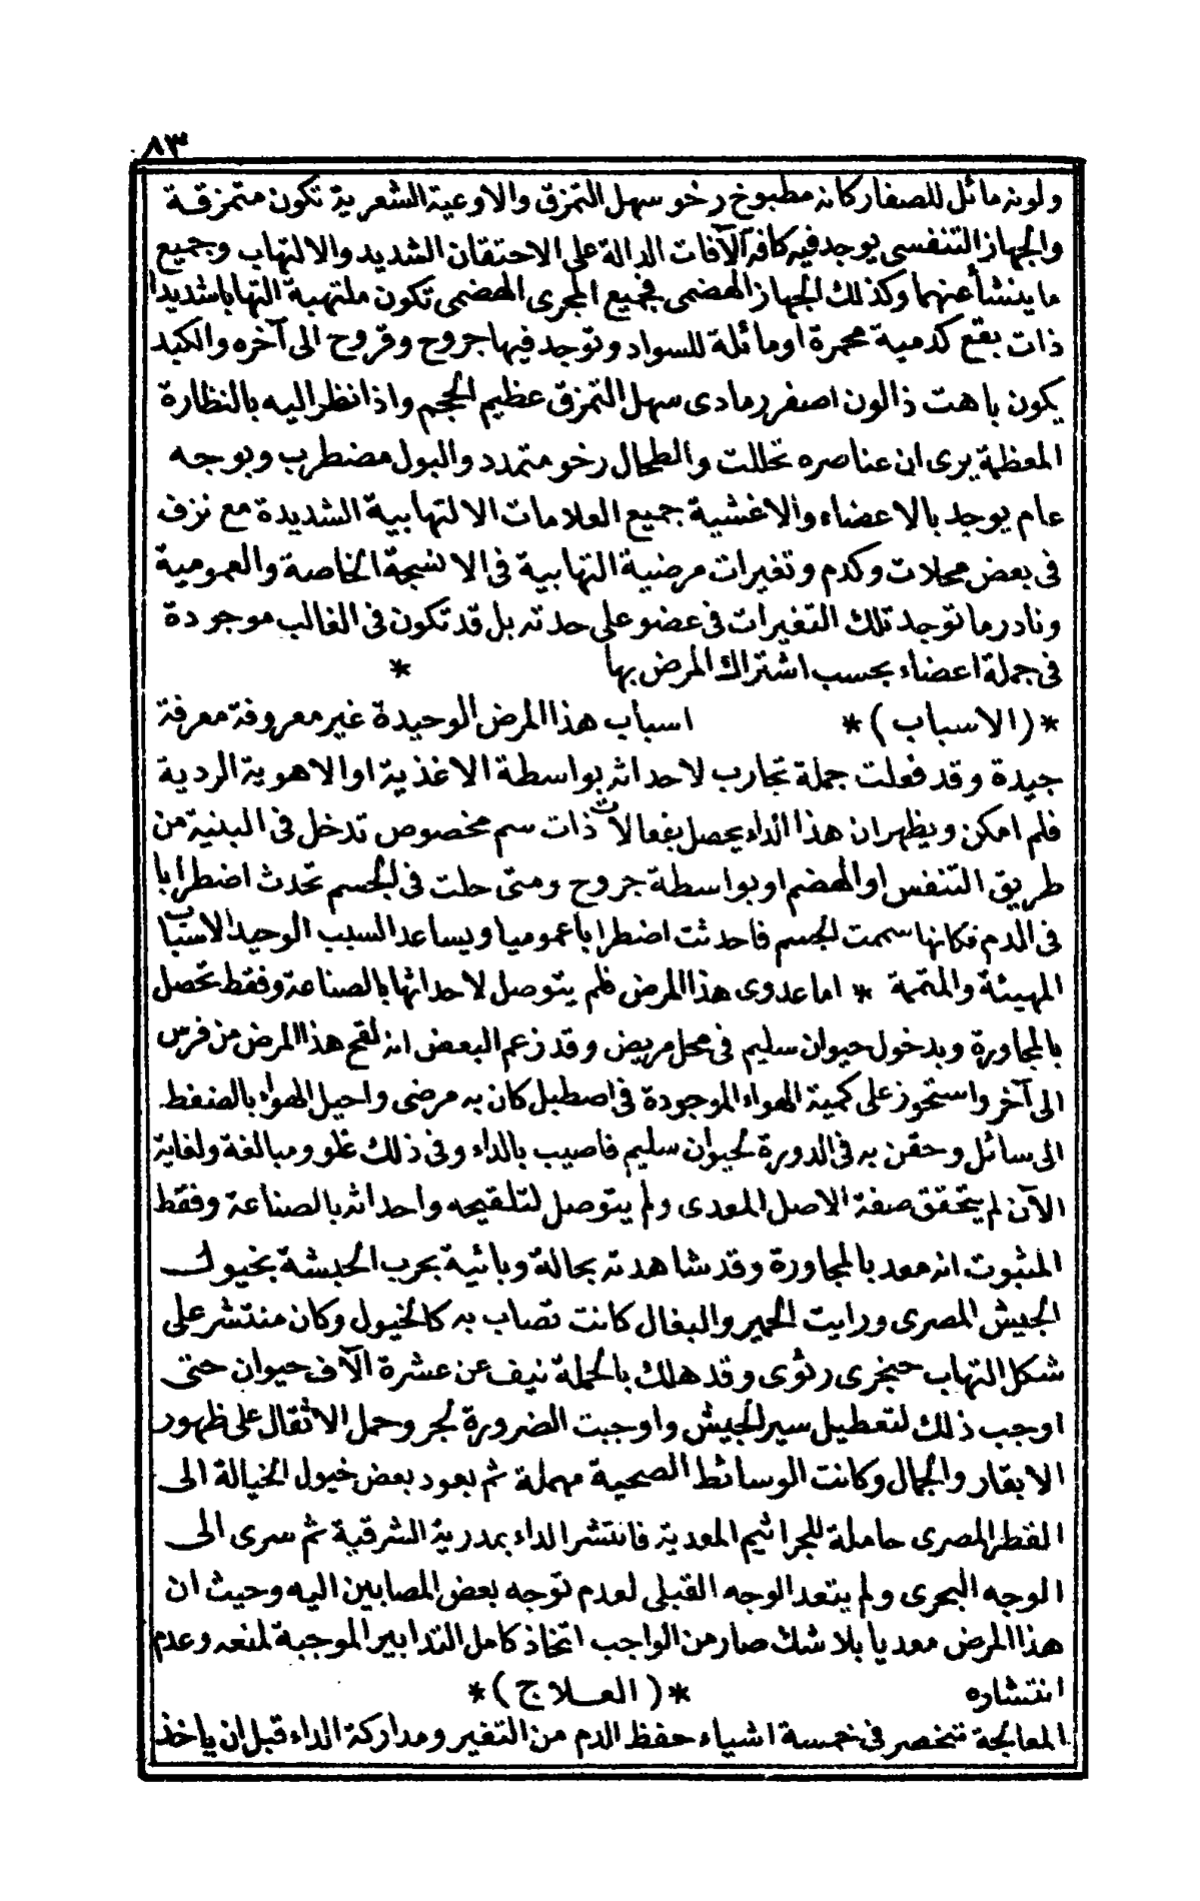 ٨٣
ولونه مائل للصفار كانه مطبوخ رخو سهل التمزق والاوعية الشعرية تكون متمزقة
والجهاز التنفسى يوجد فيه كافة الآفات الدالة على الاحتقان الشديد والالتهاب وجميع
ما ينشأ عنهما وكذلك الجهاز الهضمى فجميع المجرى الهضمى تكون ملتهبة التهابا شديدا
ذات بقع كدمية محمرة اومائلة للسواد وتوجد فيها جروح وقروح الى آخره والكبد
يكون باهت ذالون اصفر رمادى سهل التمزق عظيم الحجم واذا نظر اليه بالنظارة
المعظمة يرى ان عناصره تحللت والطحال رخو متمدد والبول مضطرب وبوجه
عام يوجد بالاعضاء والاغشية جميع العلامات الالتهابية الشديدة مع نزف
فى بعض محلات وكدم وتغيرات مرضية التهابية فى الانسجة الخاصة والعمومية
ونادر ما توجد تلك التغيرات فى عضو على حدته بل قد تكون فى الغالب موجودة
فى جملة اعضاء بحسب اشتراك المرض بها *
*(الاسباب)* اسباب هذا المرض الوحيدة غير معروفة معرفة
جيدة وقد فعلت جملة تجارب لاحداثه بواسطة الاغذية او الاهوية الردية
فلم امكن ويظهر ان هذا الداء يحصل بفعالات ذات سم مخصوص تدخل فى البنية من
طريق التنفس او الهضم او بواسطة جروح ومتى حلت فى الجسم تحدث اضطرابا
فى الدم فكانها سممت الجسم فاحدثت اضطرابا عموميا ويساعد السبب الوحيد الاسباب
المهيئة والمتممة * اما عدوى هذا المرض فلم يتوصل لاحداثها بالصناعة وفقط تحصل
بالمجاورة وبدخول حيوان سليم فى محل مريض وقد زعم البعض انه لقح هذا المرض من فرس
الى آخر واستحوز على كمية الهواء الموجودة فى اصطبل كان به مرضى واحيل الهواء بالضغط
الى سائل وحقن به فى الدورة لحيوان سليم فاصيب بالداء وفى ذلك غلو ومبالغة ولغاية
الآن لم يتحقق صفة الاصل المعدى ولم يتوصل لتلقيحه واحداثه بالصناعة وفقط
المثبوت انه معد بالمجاورة وقد شاهدته بحالة وبائية بحرب الحبشة بخيول
الجيش المصرى ورايت الحمير والبغال كانت تصاب به كالخيول وكان منتشر على
شكل التهاب حنجرى رئوى وقد هلك بالجملة نيف عن عشرة الآف حيوان حتى
اوجب ذلك لتعطيل سير الجيش واوجبت الضرورة لجر وحمل الاثقال على ظهور
الابقار والجمال وكانت الوسائط الصحية مهملة ثم بعود بعض خيول الخيالة الى
القطر المصرى حاملة للجراثيم المعدية فانتشر الداء بمدرية الشرقية ثم سرى الى
الوجه البحرى ولم يتعد الوجه القبلى لعدم توجه بعض المصابين اليه وحيث ان
هذا المرض معديا بلا شك صار من الواجب اتخاذ كامل التدابير الموجبة لمنعه وعدم
انتشاره *(العلاج)*
المعالجة تنحصر فى خمسة اشياء حفظ الدم من التغير ومداركة الداء قبل ان ياخذ